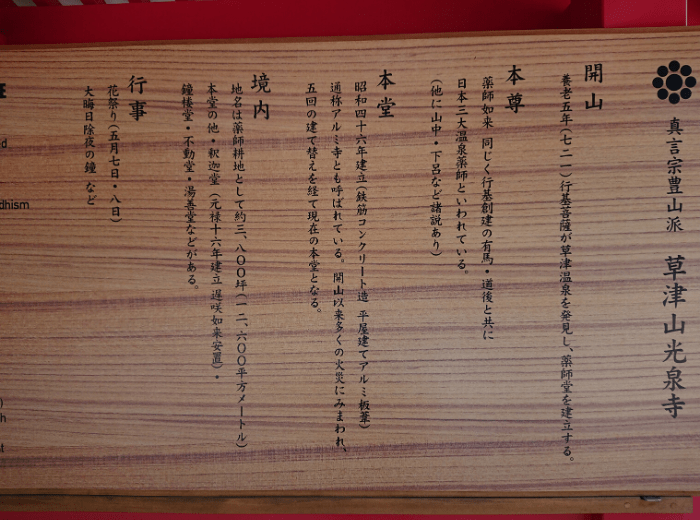 真言宗豊山派 草津山光泉寺
開山
養老五年(七二一)行基菩薩が草津温泉を発見し、薬師堂を建立する。
本尊
薬師如来 同じく行基創建の有馬・道後と共に
日本三大温泉薬師といわれている。
(他に山中・下呂など諸説あり)
本堂
昭和四十六年建立(鉄筋コンクリート造 平屋建てアルミ板葺)
通称アルミ寺とも呼ばれている。開山以来多くの火災にみまわれ、
五回の建て替えを経て現在の本堂となる。
境内
地名は薬師耕地として約三、八〇〇坪(一二、六〇〇平方メートル)
本堂の他・釈迦堂(元禄十六年建立 遅咲如来安置)・
鐘楼堂・不動堂・湯善堂などがある。
行事
花祭り(五月七日・八日)
大晦日除夜の鐘 など
dhism